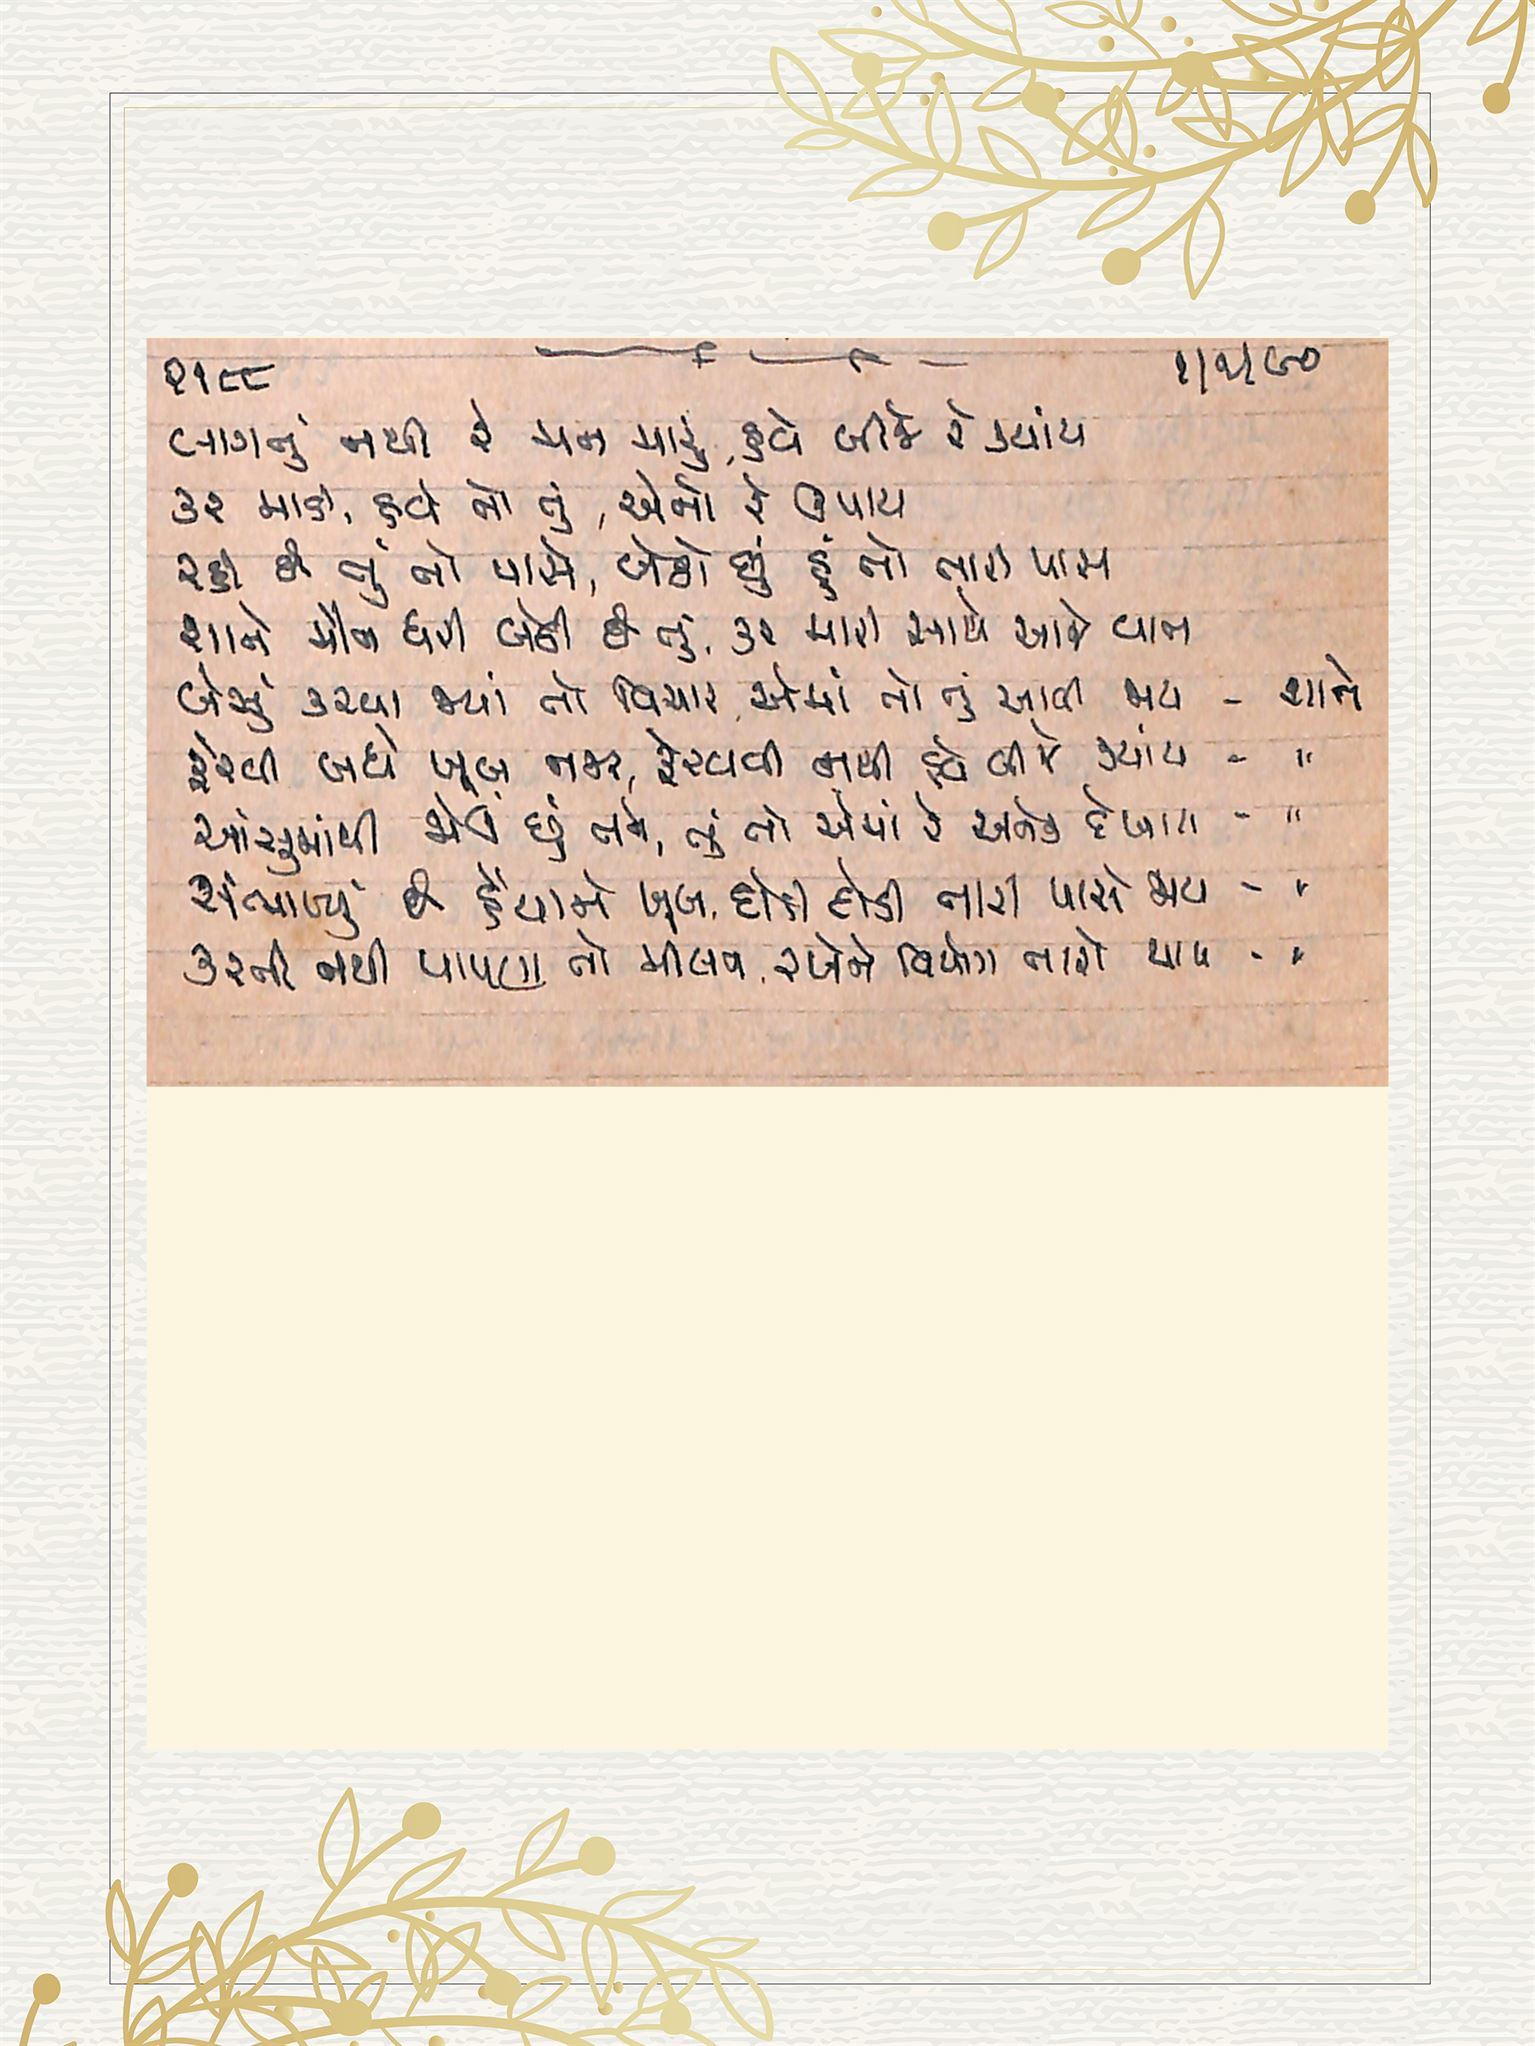 ૨૧૮૮ ૧/૧/૯૦
લાગતું નથી રે મન મારું, હવે બીજે રે ક્યાંય
કર માડી, હવે તો તું, એનો રે ઉપાય
રહી છે તું તો પાસે, બેઠો છું હું તો તારી પાસ
શાને મૌન ધરી બેઠી છે તું, કર મારી સાથે આજે વાત
બેસું કરવા જ્યાં તો વિચાર, એમાં તો તું આવી જાય - શાને
ફેરવી બધે ખૂબ નજર, ફેરવવી નથી હવે બીજે ક્યાંય - "
આંસુમાંથી જોઉં છું તને, તું તો એમાં રે અનેક દેખાય - "
સંભાળ્યું છે હૈયાને ખૂબ, દોડી દોડી તારી પાસે જાય - "
કરતી નથી પાપણ તો મીલન, રખેને વિયોગ તારો થાય - "